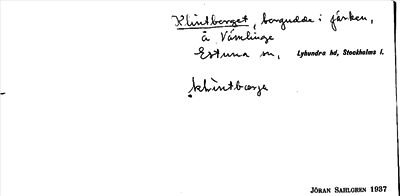 Klintberget, bergudde i fjärden,
å Vämlinge
Estuna sn, Lyhundra hd, Stockholms l.
klintbærge
JÖRAN SAHLGREN 1937